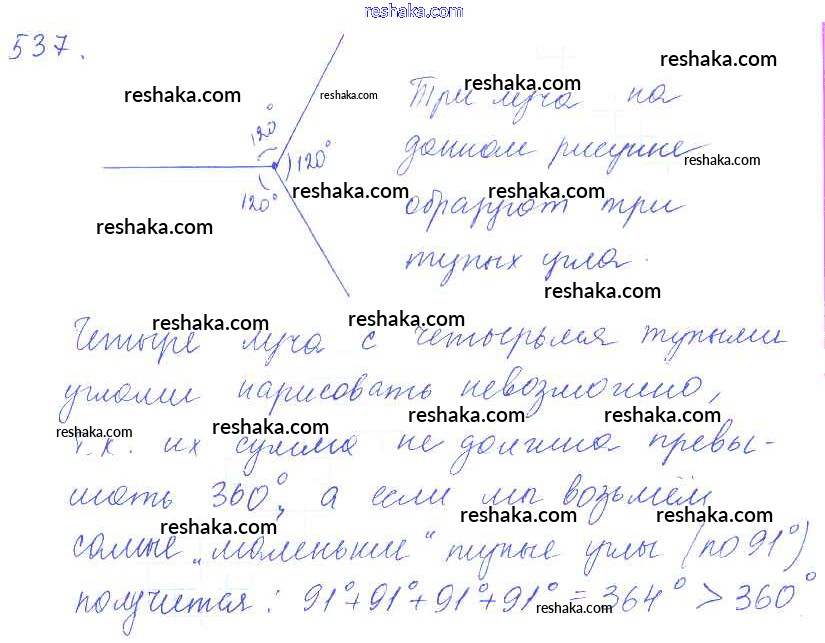 reshaka.com
537.
reshaka.com
reshaka.com
reshaka.com
reshaka.com
120°
120°
120°
Три луча на
данном рисунке
образуют три
тупых угла.
reshaka.com
reshaka.com
reshaka.com
reshaka.com
reshaka.com
reshaka.com
reshaka.com
reshaka.com
Четыре луча с четырьмя тупыми
углами нарисовать невозможно,
reshaka.com
reshaka.com
reshaka.com
reshaka.com
т.к. их сумма не должна превы-
шать 360°, а если мы возьмём
reshaka.com
reshaka.com
reshaka.com
самые „маленькие“ тупые углы (по 91°)
получится: 91°+91°+91°+91°=364°>360°
reshaka.com